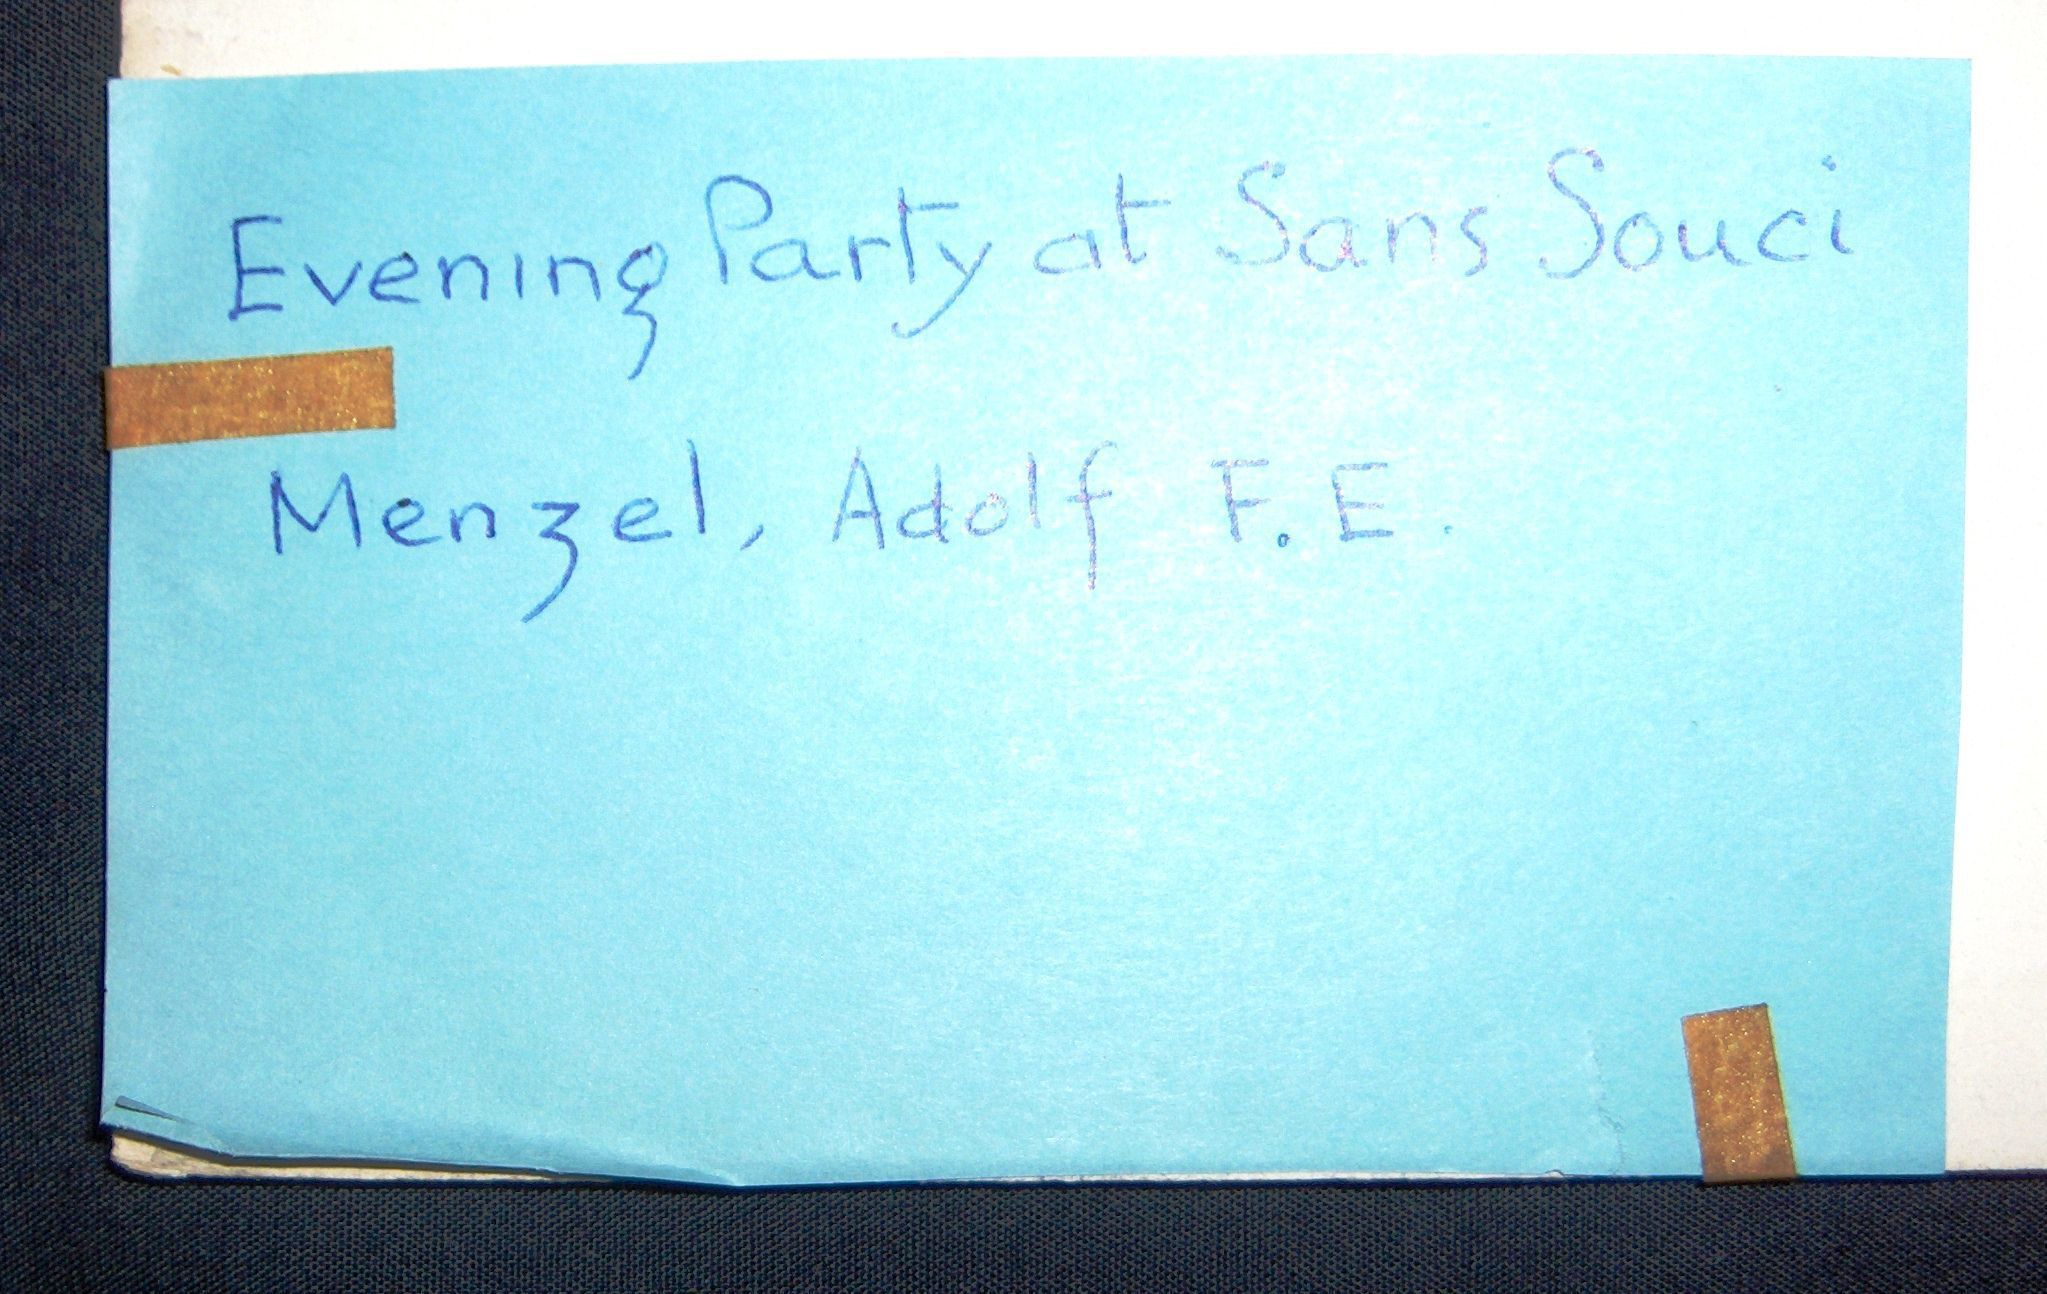 Evening Party at Sans Souci
Menzel, Adolf F. E.